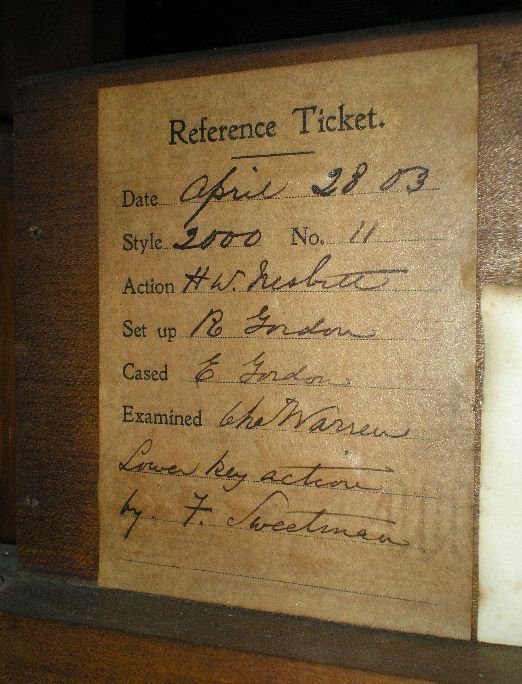 Reference Ticket.
Date April 28 03
Style 2000 No. 11
Action H.W. Nesbitt
Set up R Gordon
Cased E Gordon
Examined Cha Warren
Lower key action
by F. Sweetman